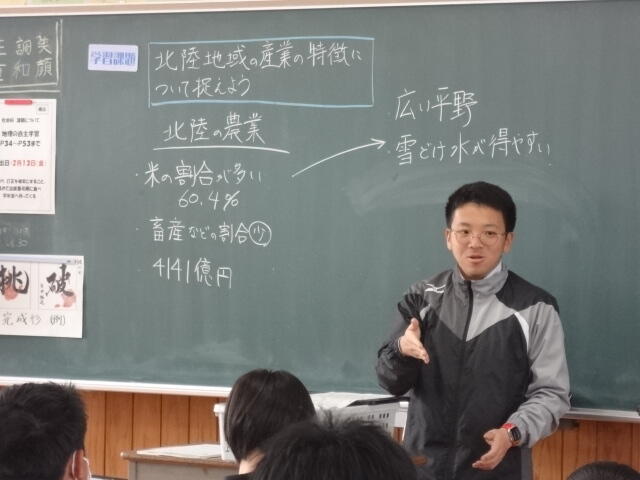 学習課題
北陸地域の産業の特徴に
ついて捉えよう
北陸の農業
・米の割合が多い
60.4%
・畜産などの割合少
・4141億円
・広い平野
・雪どけ水が得やすい
調 笑
和 顔
地理の自主学習
P34～P53まで
挑
破
完成形(例)